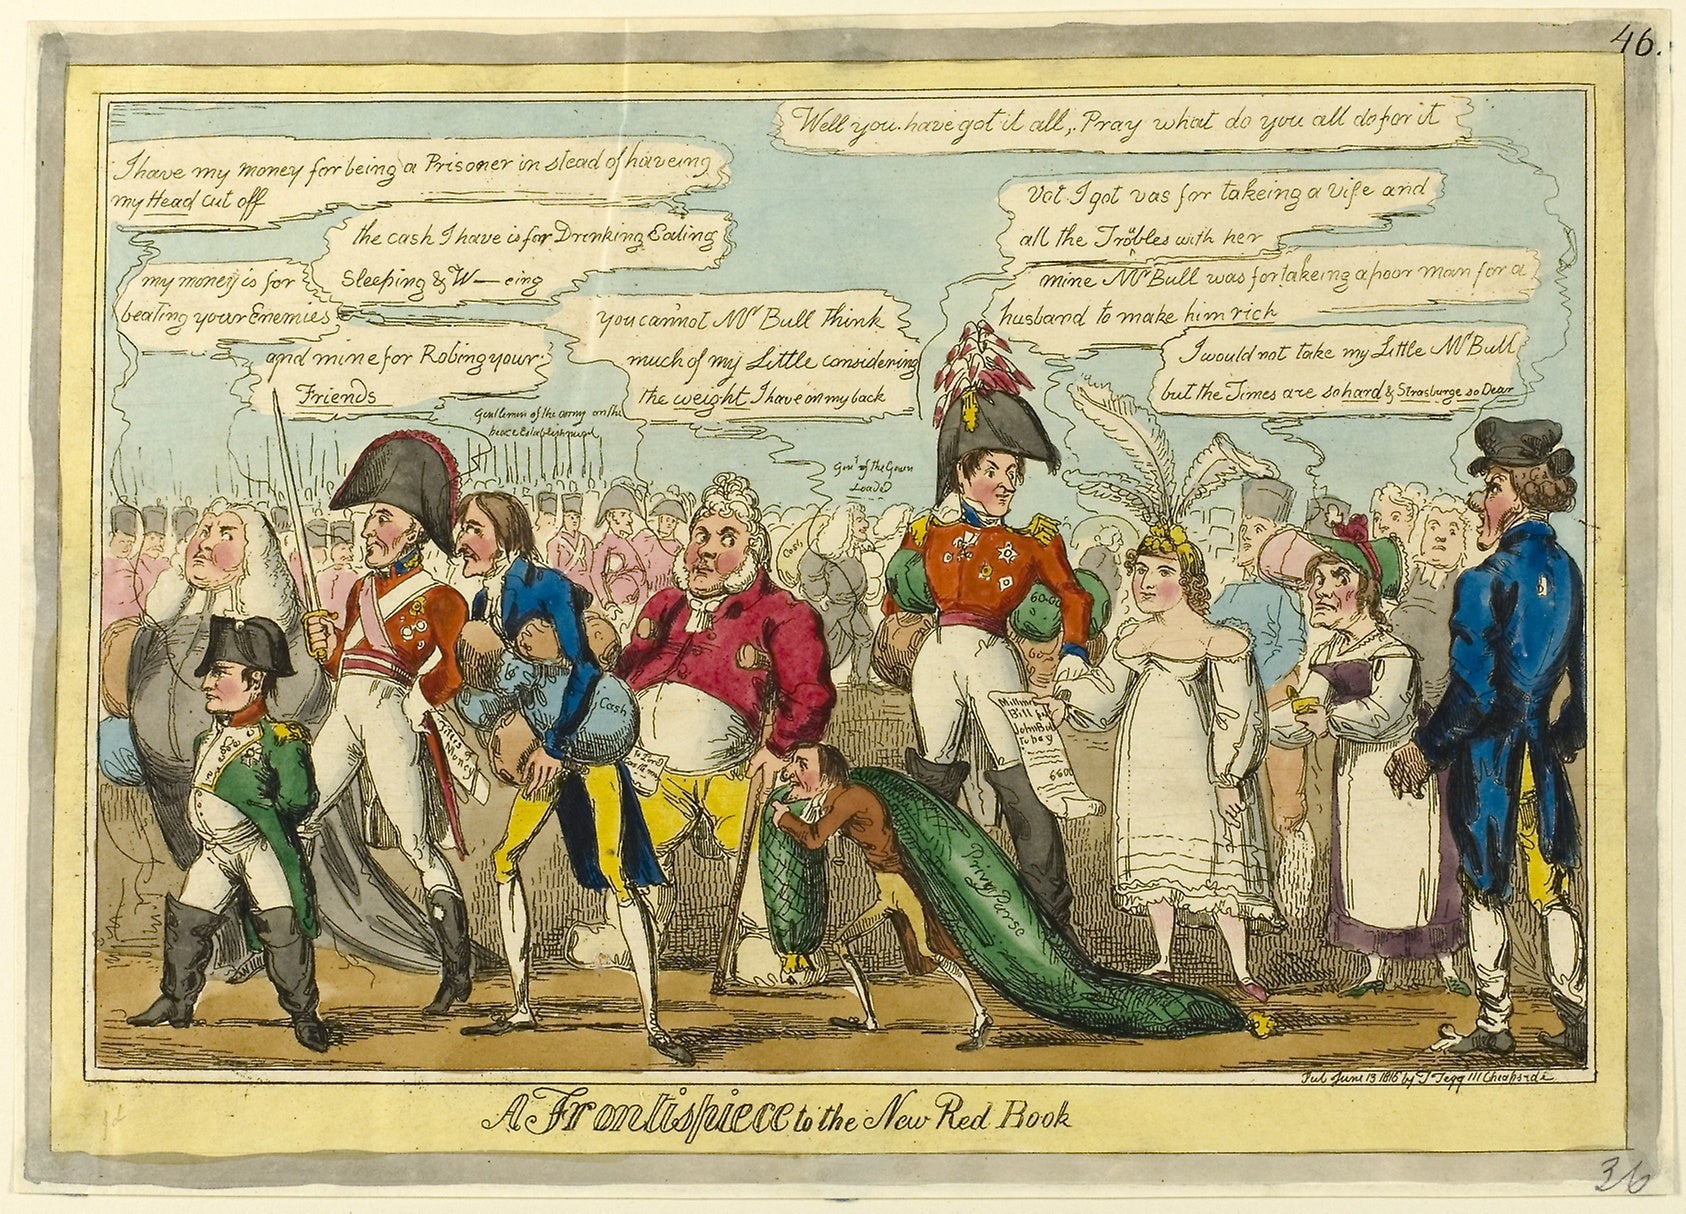 46.
Well you have got it all, Pray what do you all do for it
I have my money for being a Prisoner in stead of haveing
my Head cut off
the cash I have is for Drinking Eating
Sleeping & W— eing
my money is for
beating your Enemies
and mine for Robing your
Friends
you cannot Mr Bull think
much of my Little considering
the weight I have on my back
Vot I got vas for takeing a vife and
all the Trobles with her
mine Mr Bull was for takeing a poor man for a
husband to make him rich
I would not take my Little Mr Bull
but the Times are so hard & Strasburge so Dear
Gentlemen of the army on the
peace Establishment
Gent of the Gown
Loaded
Cash
6000
60
Milliners
Bill for
John Bull
to pay
6600
Cash
Privy Purse
Pub June 13 1816 by T Tegg 111 Cheapside
A Frontispiece to the New Red Book
36